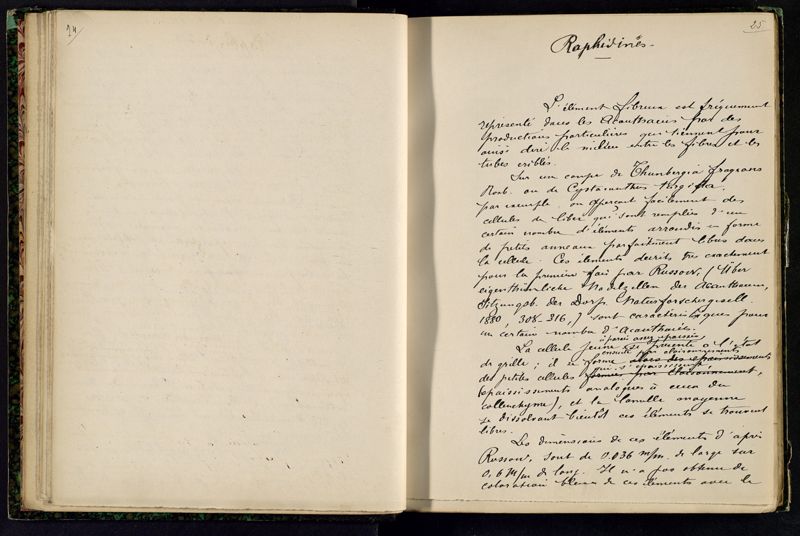 24
25
Raphidines.
L'élément libreux est fréquemment
représenté dans les Acanthacées par des
productions particulières qui tiennent pour
ainsi dire le milieu entre les fibres et les
tubes criblés.
Sur une coupe de Thunbergia fragrans
Roxb. ou de Cystacanthus turgida
par exemple, on aperçoit facilement des
cellules de liber qui sont remplies d'un
certain nombre d'éléments arrondis en forme
de petits anneaux parfaitement libres dans
la cellule. Ces éléments décrits très exactement
pour la première fois par Russow, (Über
eigenthümliche Nadelzellen der Acanthaceen,
Sitzungsb. der Dorp. Naturforschergesell.
1880, 308-316,) sont caractéristiques pour
un certain nombre d'Acanthacées.
à parois assez épaissies
La cellule jeune se présente à l'état
ensuite par cloisonnements
de grille; il se forme alors des épaississements
qui s'épaississent
des petites cellules formées par cloisonnement,
(épaississements analogues à ceux du
collenchyme), et la lamelle moyenne
se dissolvant bientôt ces éléments se trouvent
libres.
Les dimensions de ces éléments d'après
Russow, sont de 0.036 m/m. de large sur
0,6 m/m de long. Il n'a pas obtenu de
coloration bleue de ces éléments avec le